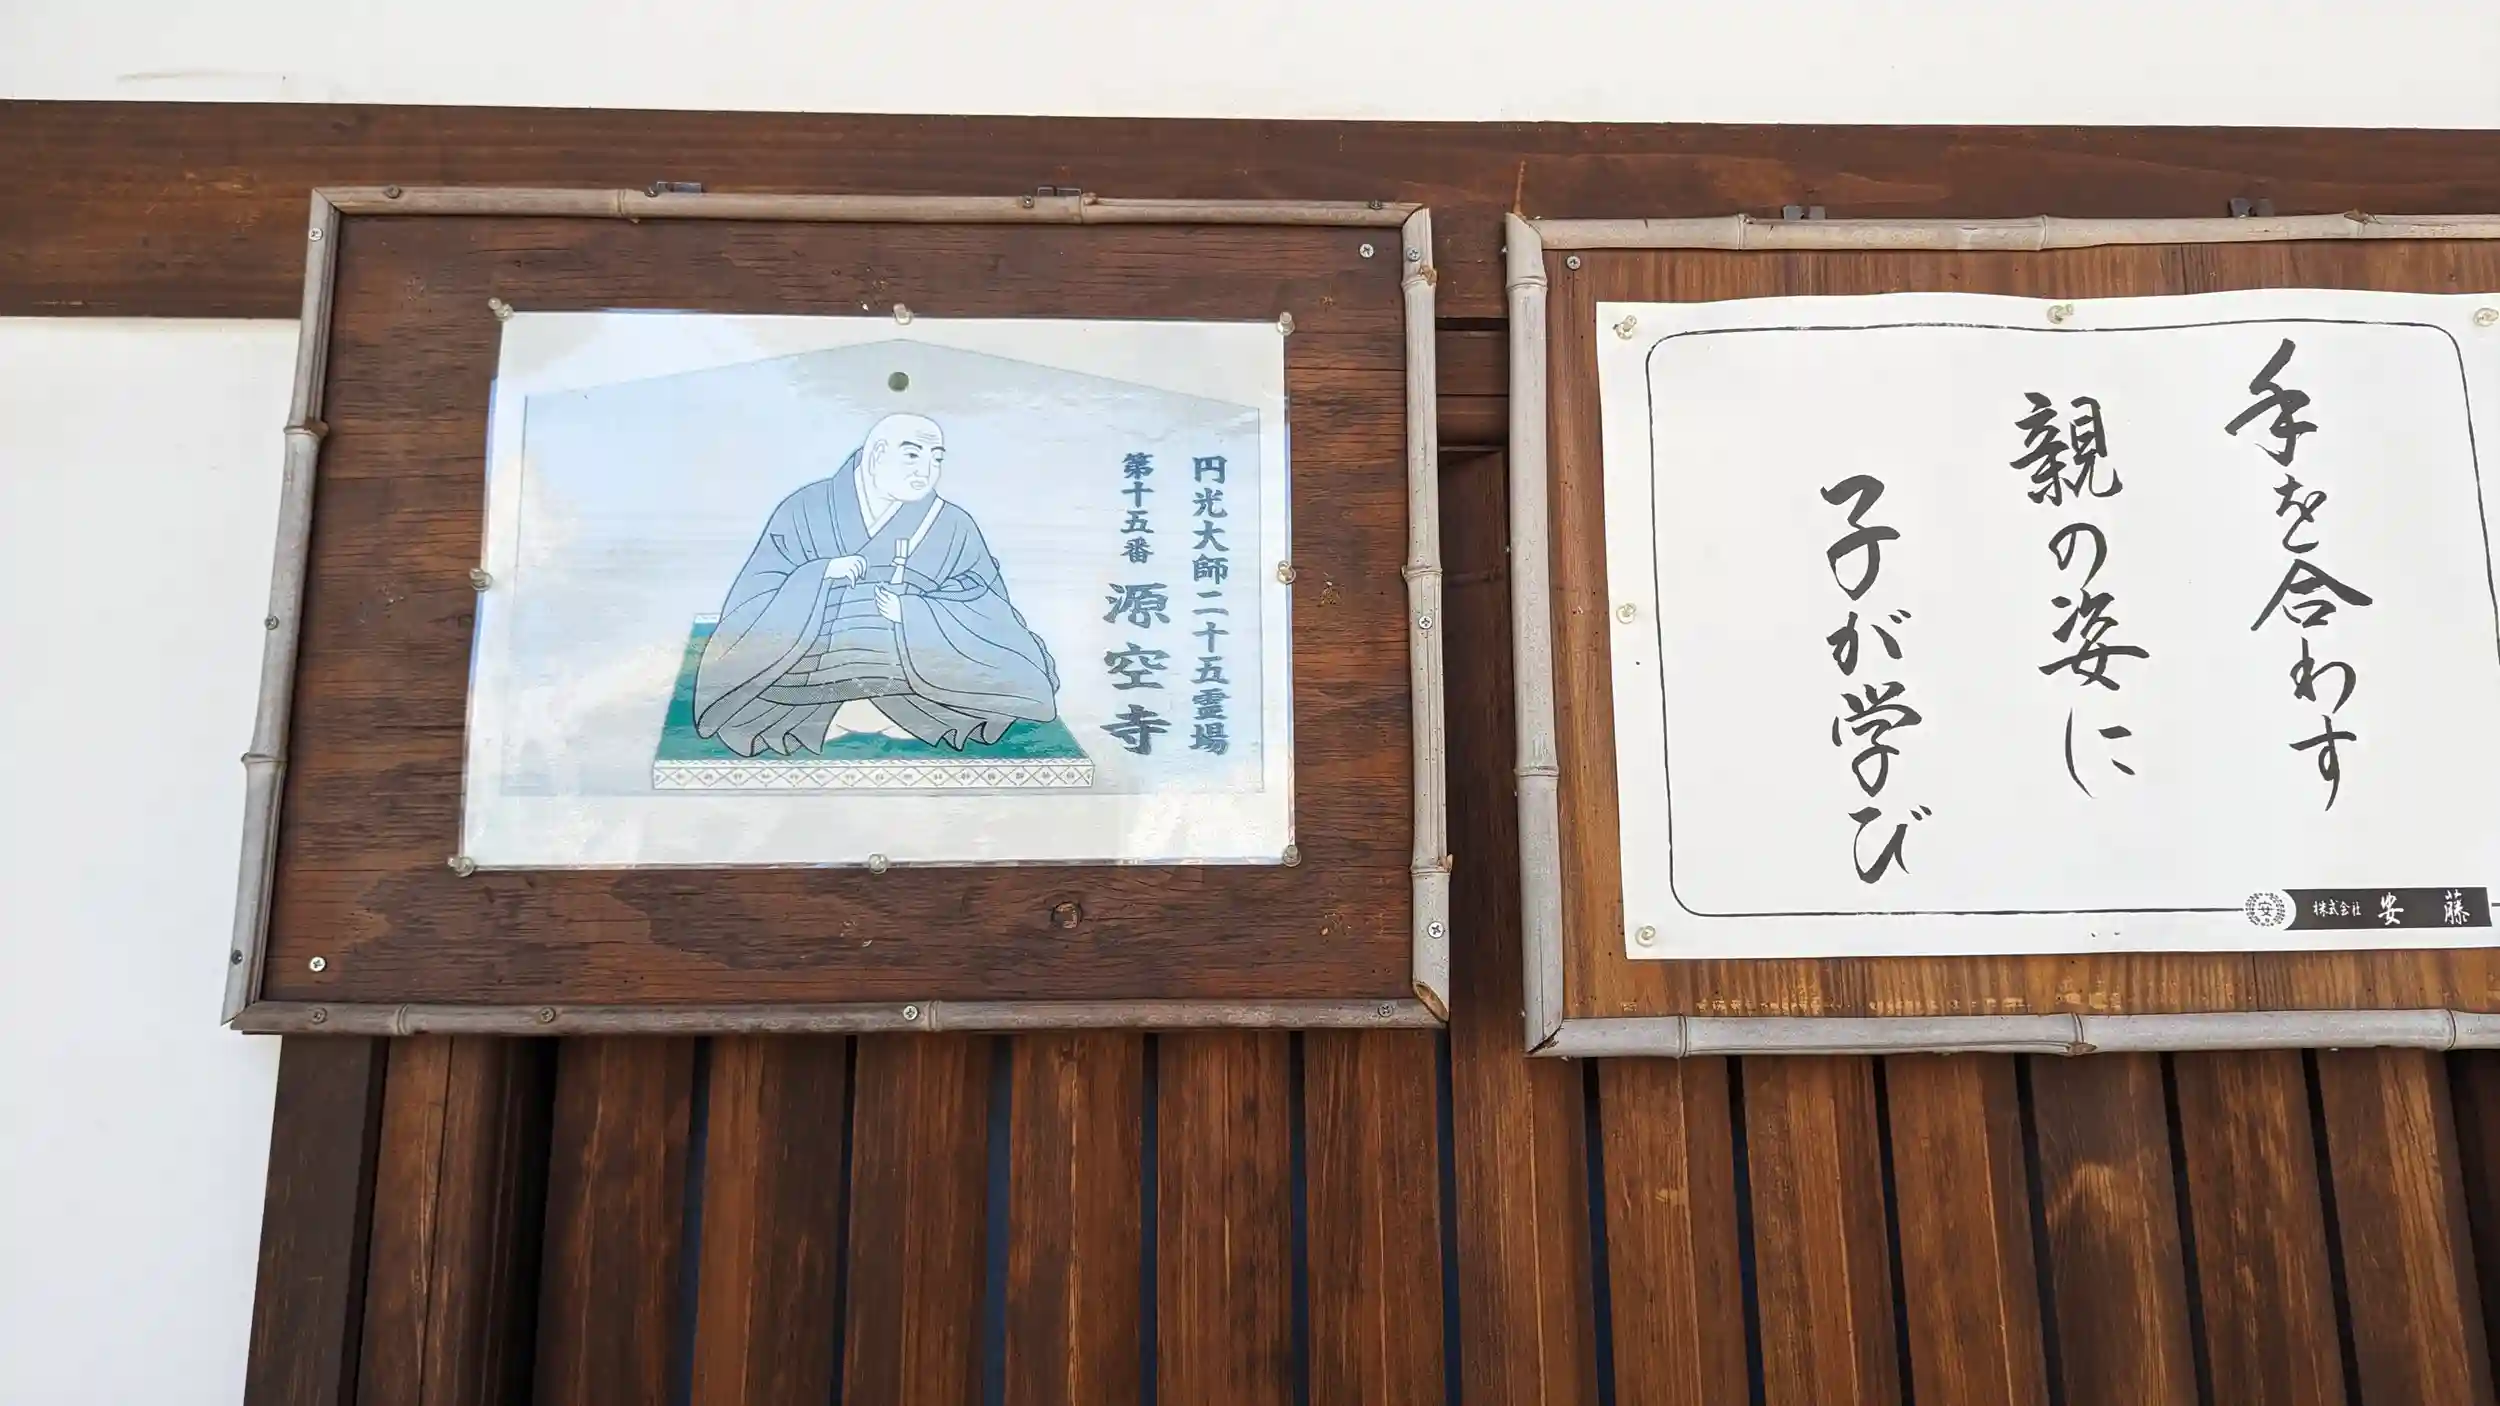 円光大師二十五霊場
第十五番 源空寺
手を合わす
親の姿に
子が学び
安 株式会社 安藤